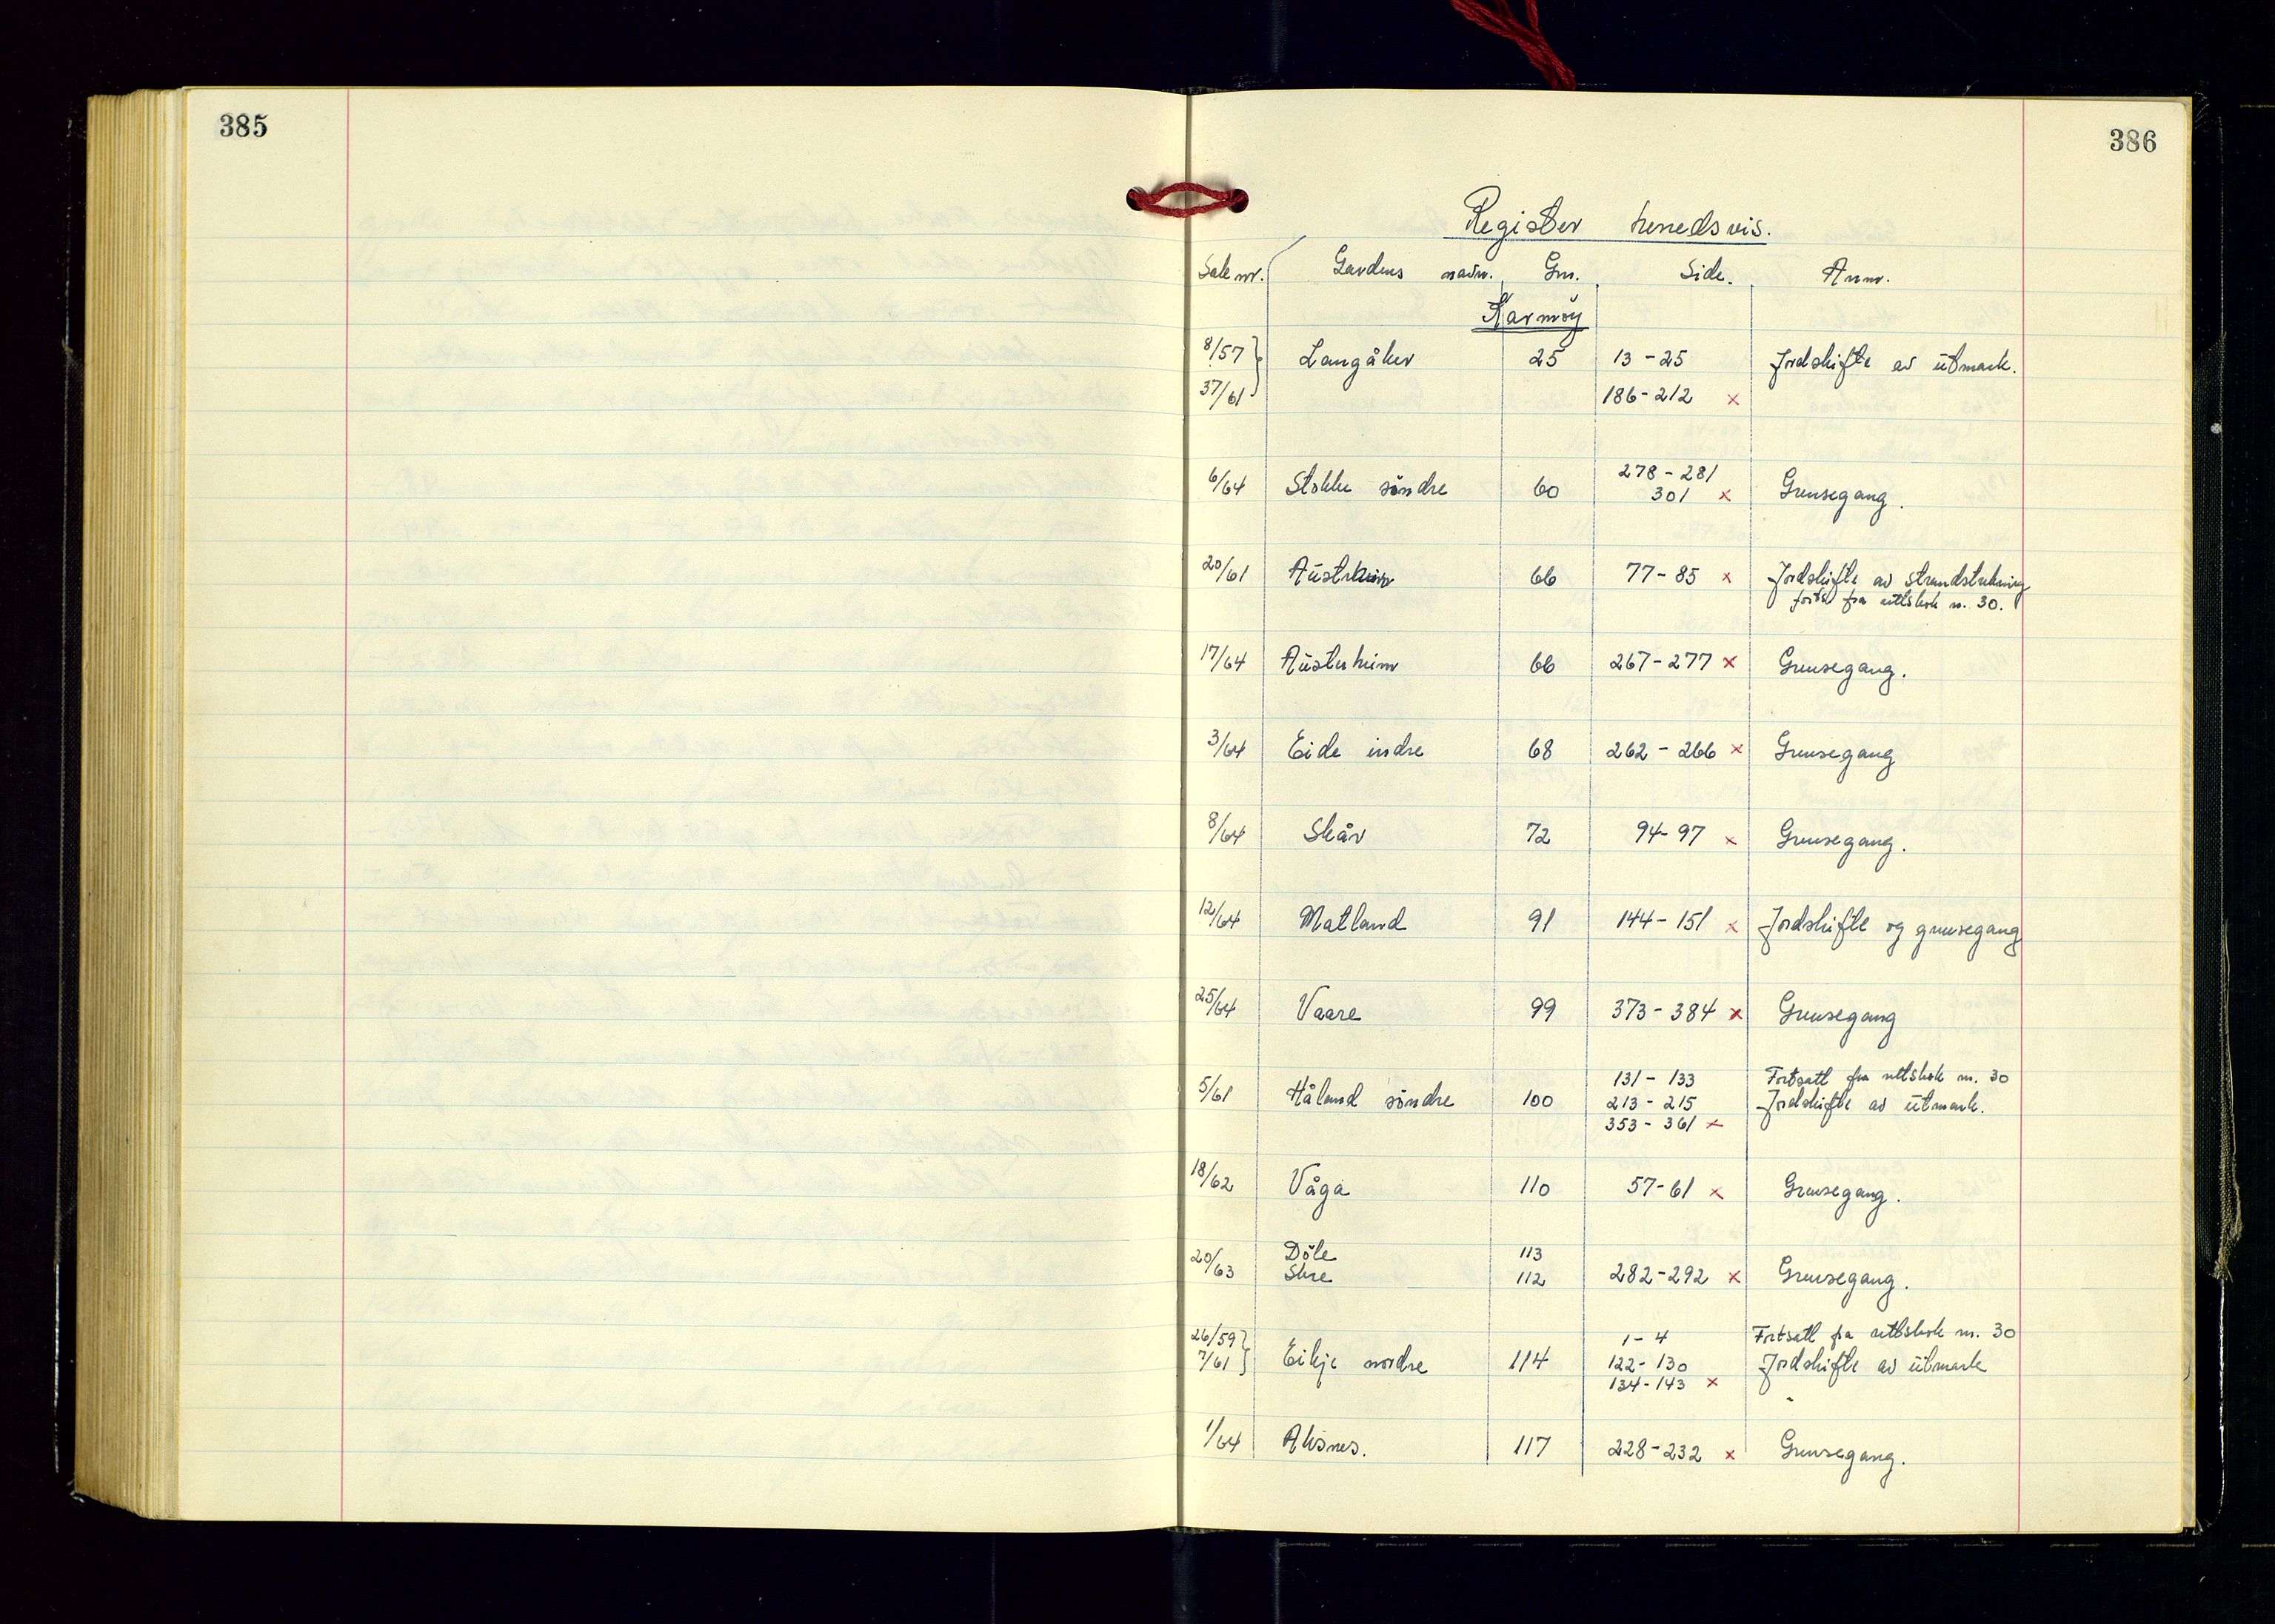 385
386
Register herredsvis.
Sak nr. Gardens navn. Gnr. Side. Anm.
Karmöy
8/57 Langåker 25 13 - 25 Jordskifte av utmark.
37/61 186 - 212 x
278 - 281
6/64 Stokke söndre 60 301 x Grensegang.
20/61 Austrheim 66 77 - 85 x Jordskifte av strandstrekning
forts. fra rettsbok nr. 30.
17/64 Austerheim 66 267 - 277 x Grensegang.
3/64 Eide indre 68 262 - 266 x Grensegang
8/64 Skår 72 94 - 97 x Grensegang.
12/64 Matland 91 144 - 151 x Jordskifte og grensegang
25/64 Vaare 99 373 - 384 x Grensegang
131 - 133 Fortsatt fra rettsbok nr. 30
5/61 Håland söndre 100 213 - 215 Jordskifte av utmark.
353 - 361 x
18/62 Våga 110 57 - 61 x Grensegang.
Döle 113
20/63 Skre 112 282 - 292 x Grensegang.
26/59 1 - 4 Fortsatt fra rettsbok nr. 30
7/61 Eikje nordre 114 122 - 130 Jordskifte av utmark
134 - 143 x
1/64 Aksnes. 117 228 - 232 x Grensegang.